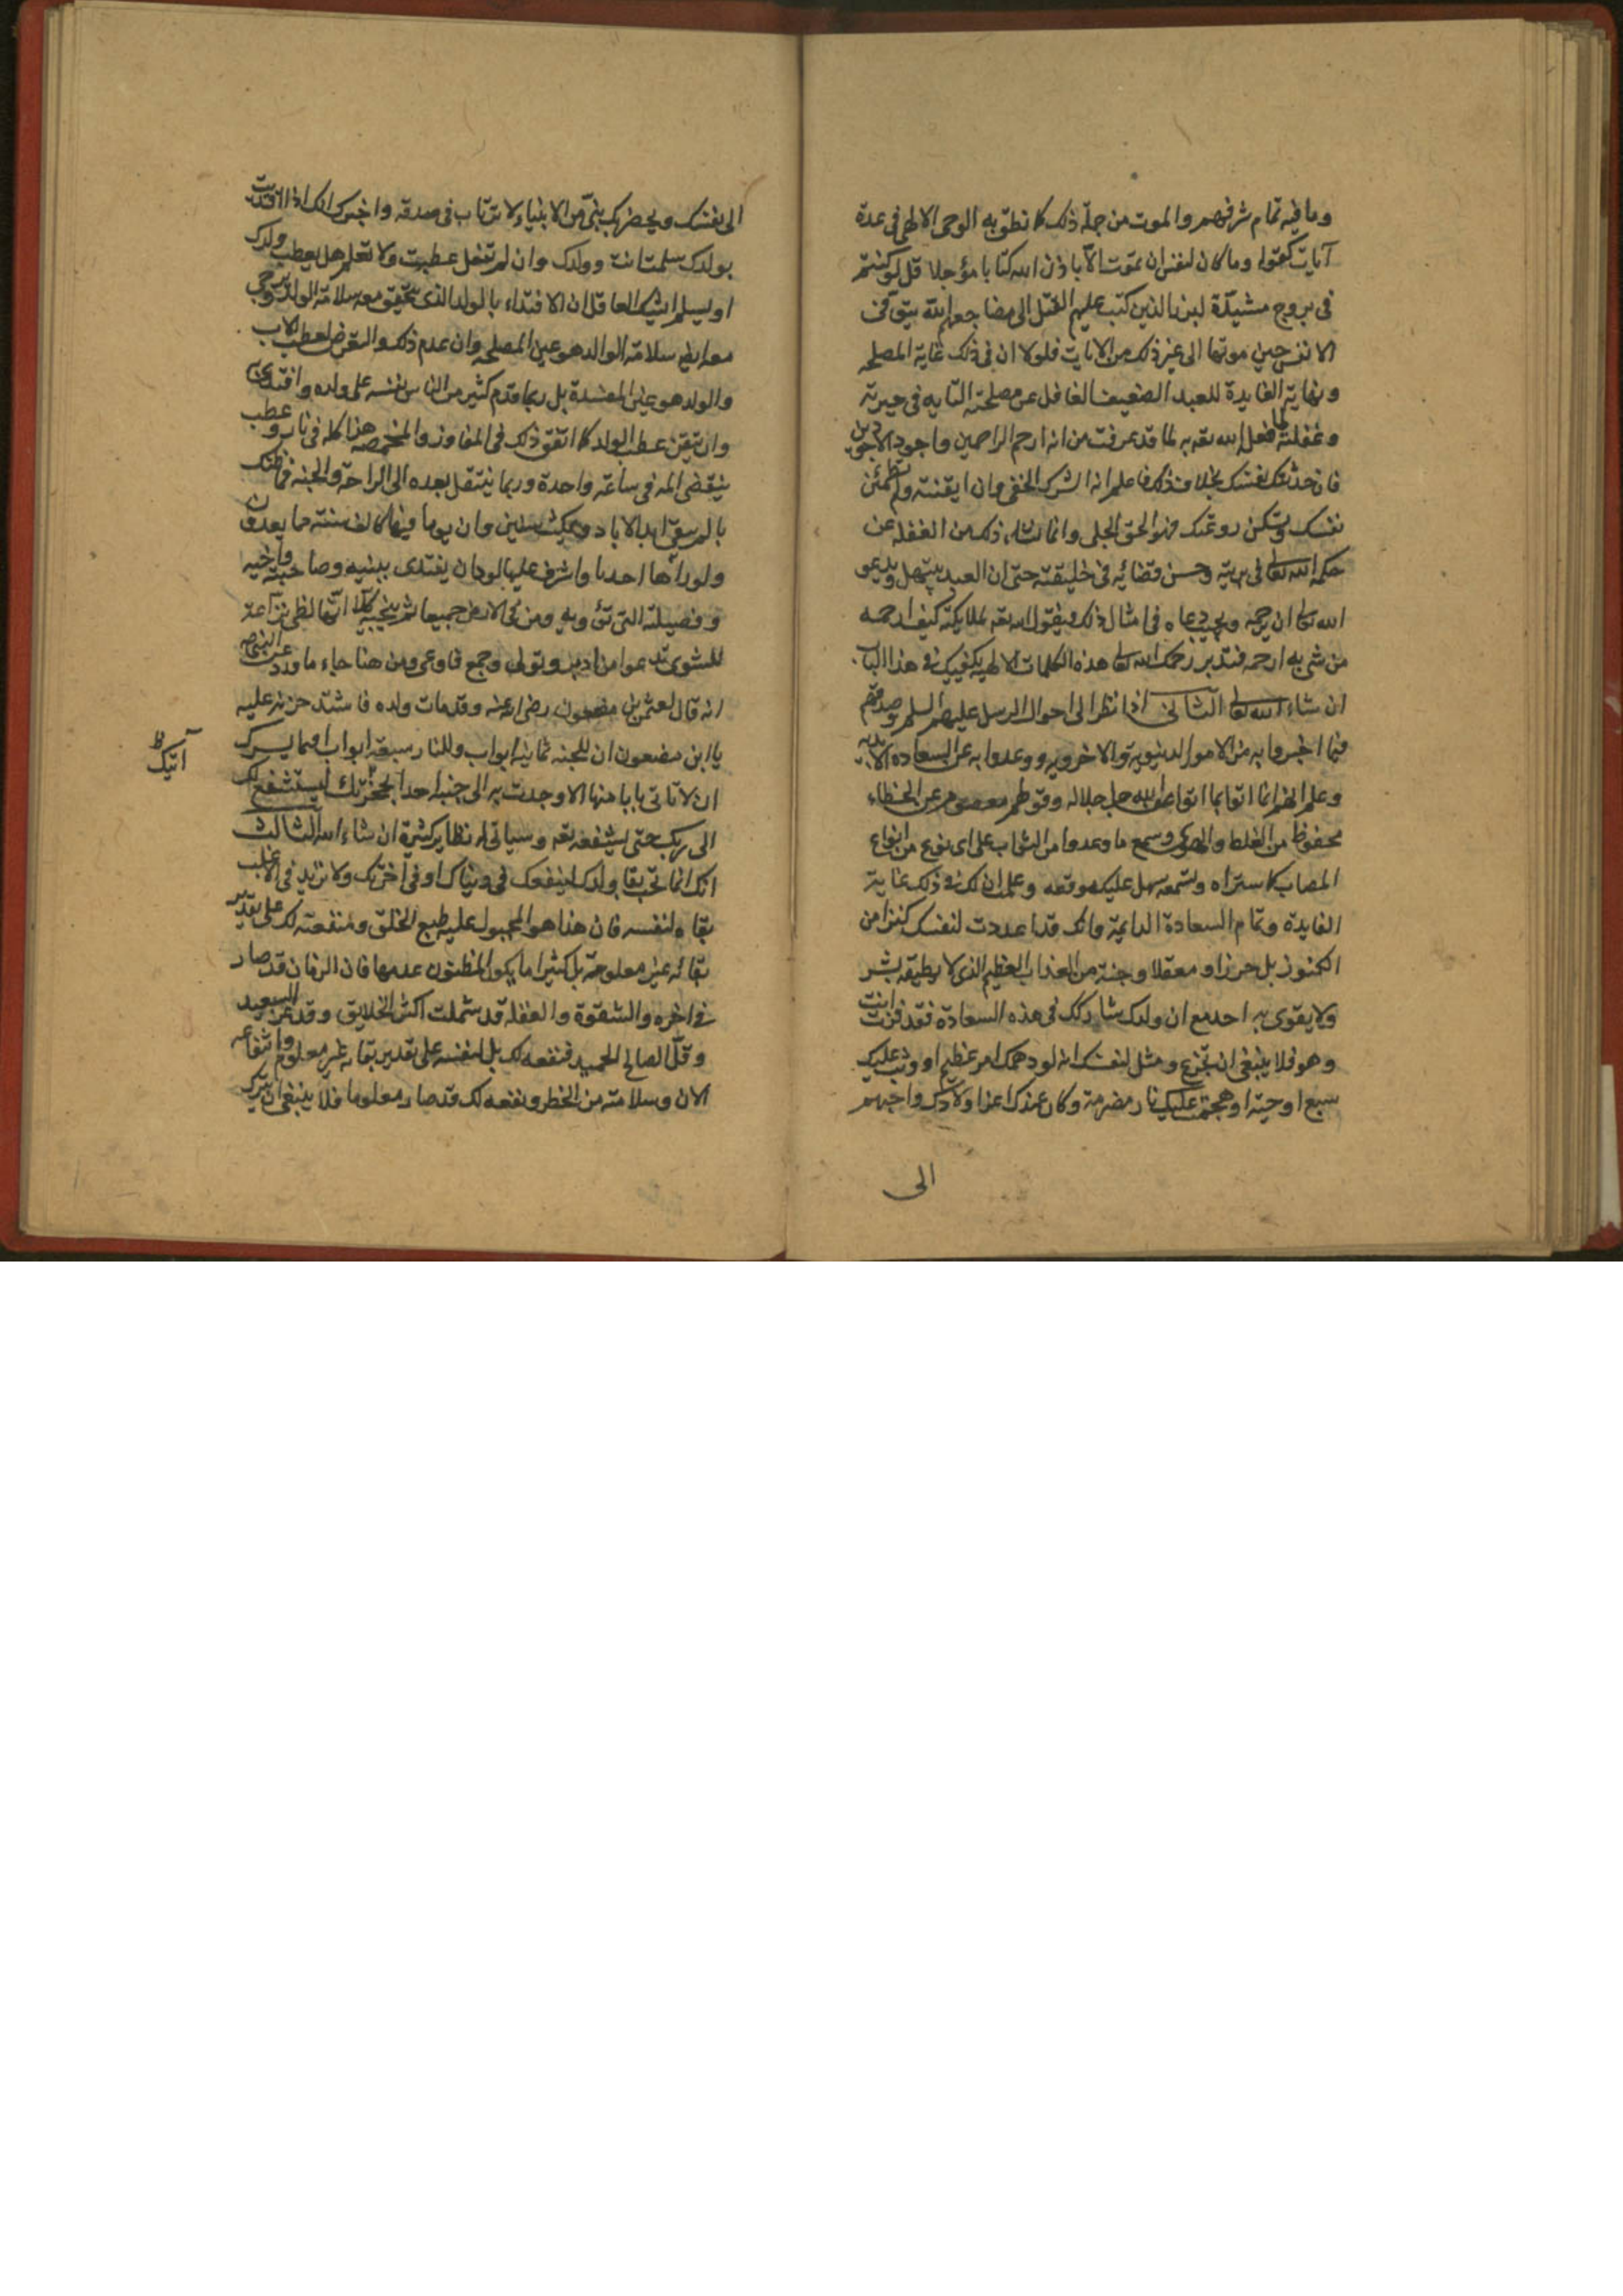 وما فيه تمام شرفهم والموت من جملة ذلك كما نطق به الوحي الالهي في عدة
آيات كقوله وما كان لنفس ان تموت الا باذن الله كتابا مؤجلا قل لو كنتم
في بروج مشيدة لبرز الذين كتب عليهم القتل الى مضاجعهم الله يتوفى
الانفس حين موتها الى غير ذلك من الايات فلولا ان في ذلك غاية المصلحه
ونهاية الفايدة للعبد الضعيف الغافل عن مصلحته التايه في حيرته
وغفلته لما فعل الله تعه به لما قد عرفت من انه ارحم الراحمين واجود الاجودين
فان حدثتك نفسك بخلاف ذلك فاعلم انه الشرك الخفي وان ايقنته ولم تطمئن
نفسك وتسكن روعتك فهو الحمق الجلي وانما نشاء ذلك من الغفله عن
حكمة الله تعالى في بريته وحسن قضائه في خليقته حتى ان العبد يبتهل ويدعو
الله تعالى ان يرحمه ويجيب دعاه في امثال ذلك فيقول الله تعه لملايكته كيف ارحمه
من شي به ارحمه فتدبر رحمك الله تعالى هذه الكلمات الالهيه تكفيك في هذا الباب
ان شاء الله تعالى الثاني اذا نظر الى احوال الرسل عليهم السلم وصدقهم
فيما اخبروا به من الامور الدنيوية والاخرويه ووعدوا به من السعاده الابديه
وعلم انهم انما اتوا بما اتوا عن الله جل جلاله وقولهم معصوم عن الخطاء
محفوظ من الغلط والهوى وسمع ما وعدوا من الثواب على اي نوع من انواع
المصاب كما ستراه وتسمعه سهل عليك موقعه وعلمت ان لك في ذلك غاية
الفايدة وتمام السعادة الدايمة وانك قد اعددت لنفسك كنزا من
الكنوز بل حرزا ومعقلا وجنة من العذاب العظيم الذي لا يطيقه بشر
ولا يقوى به احد مع ان ولدك شاركك في هذه السعادة فقد فزت انت
وهو فلا ينبغي ان تجزع ومثل لنفسك انه لو دهمك امر عظيم او وثب عليك
سبع او حية او هجمت عليك نار مضرمة وكان عندك اعز اولادك واحبهم
الى
الى نفسك وبحضرتك نبي من الانبياء لا ترتاب في صدقه واخبرك انك اذا افتديت
بولدك سلمت انت وولدك وان لم تفعل عطبت ولا تعلم هل يعطب ولدك
او يسلم ايشك العاقل ان الافتداء بالولد الذي يتحقق معه سلامة الولد ويرجى
معه ايضا سلامة الوالد هو عين المصلحه وان عدم ذلك والتعرض لعطب الاب
والولد هو عين المفسدة بل ربما قدم كثير من الناس نفسه على ولده وافتدى به
وان تيقن عطب الولد كما اتفق ذلك في المفاوز والمخمصه هذا كله في نار وعطب
ينقضي المه في ساعة واحدة وربما ينتقل بعده الى الراحة والجنه فما ظنك
بالم يبقى ابد الاباد ويمكث سنين وان يوما منها كالف سنة مما يعدون
ولو راها احدنا واشرف عليها لود ان يفتدى ببنيه وصاحبته واخيه
وفصيلته التي تؤويه ومن في الارض جميعا ثم ينجيه كلا انها لظى نزاعة
للشوى تدعوا من ادبر وتولى وجمع فاوعى ومن هنا جاء ما ورد عن النبي ص
انه قال لعثمن بن مضعون رضي الله عنه وقد مات ولده فاشتد حزنه عليه
يا ابن مضعون ان للجنه ثمانية ابواب وللنار سبعة ابواب افما يسرك
ان لا تاتي بابا منها الا وجدت به الى جنبه احدا بحجزتك ليستشفع لك
الى ربك حتى يشفعه تعه وسياتي له نظاير كثيرة ان شاء الله الثالث
انك انما تحب بقا ولدك لينفعك في دنياك او في اخرتك ولا تريد في الاغلب
بقاه لنفسه فان هذا هو المجبول عليه طبع الخلق ومنفعته لك على تقدير
بقائه غير معلومة بل كثيرا ما يكون المظنون عدمها فان الزمان قد صار
في اخره والشقوة والغفله قد شملت اكثر الخلايق وقد عز السعيد
وقل الصالح الحميد فنفعه لك بل لنفسه على تقدير بقائه غير معلوم وانتفاعه
الان وسلامته من الخطر ونفعه لك قد صار معلوما فلا ينبغي ان تترك